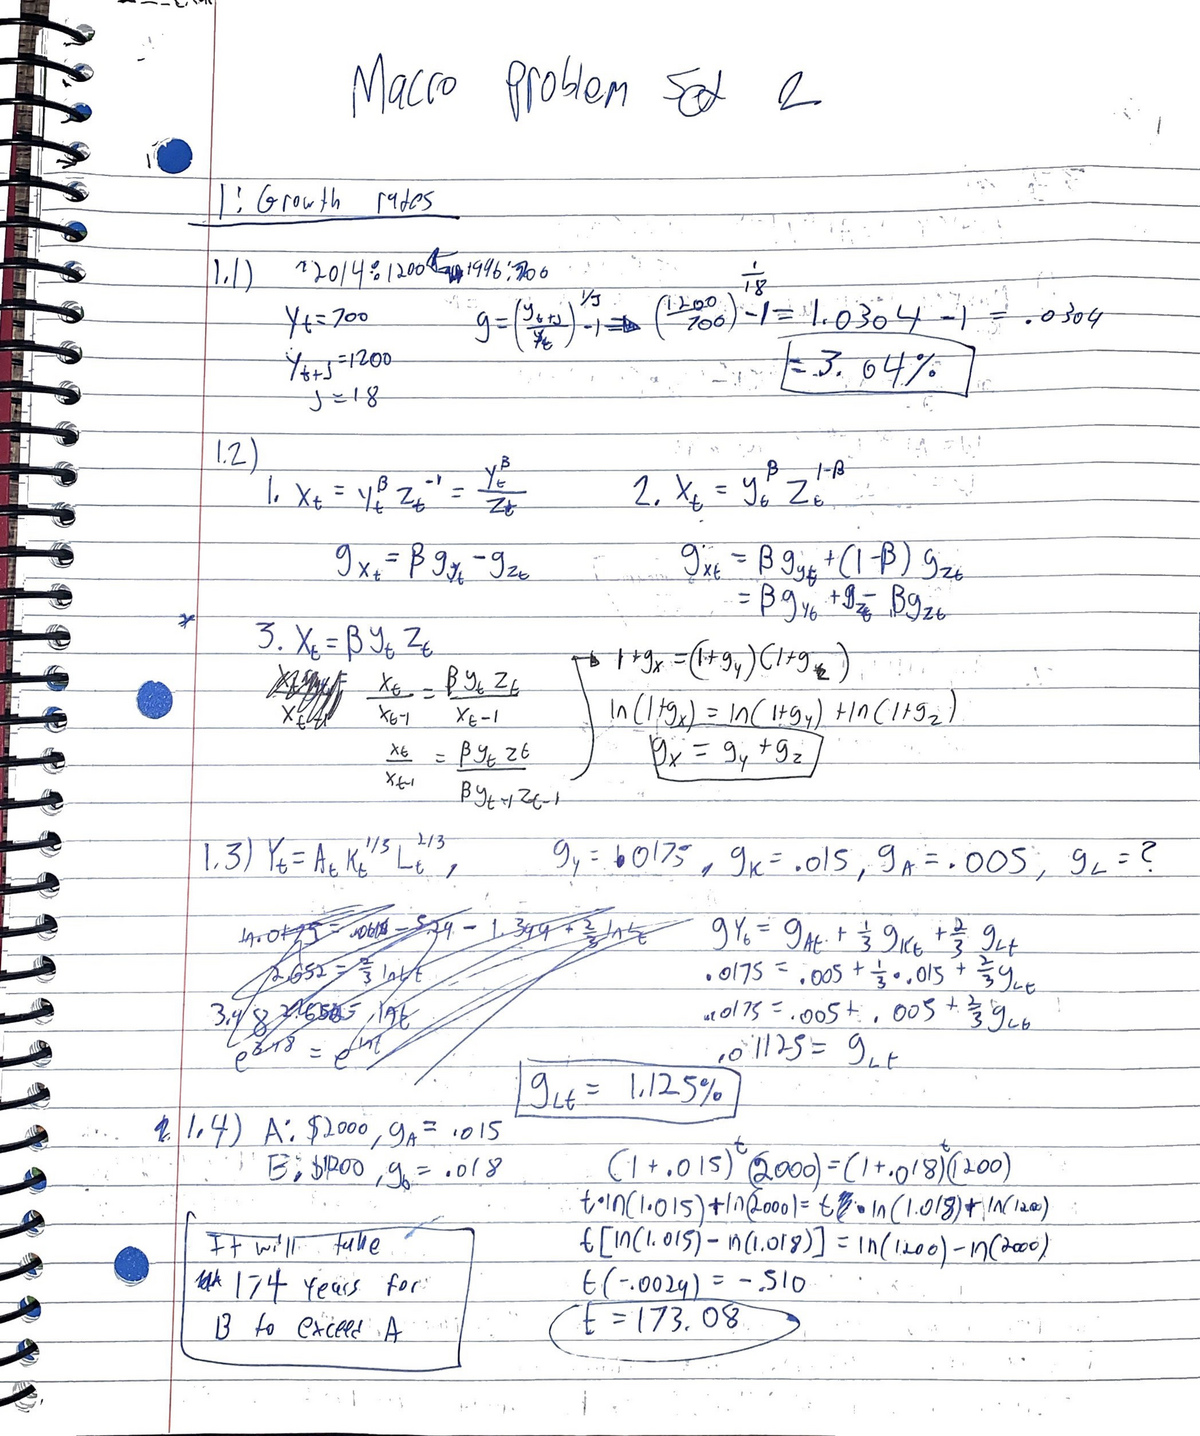 Macro problem Set 2
1: Growth rates
1.1) 2014: 1200 1996: 700
Y_t = 700
Y_{t+J} = 1200
J = 18
g = (y_{t+J}/y_t)^{1/J} - 1 ⇒ (1200/700)^{1/18} - 1 = 1.0304 - 1 = .0304
= 3.04%
1.2)
1. X_t = y_t^β Z_t^{-1} = y_t^β / Z_t
g_{X_t} = β g_{y_t} - g_{Z_t}
2. X_t = y_t^β Z_t^{1-β}
g_{X_t} = β g_{y_t} + (1-β) g_{Z_t}
= β g_{y_t} + g_{Z_t} - β g_{Z_t}
* 3. X_t = β y_t Z_t
X_t / X_{t-1} = β y_t Z_t / X_{t-1}
X_t / X_{t-1} = β y_t Z_t / β y_{t-1} Z_{t-1}
→ 1 + g_x = (1 + g_y)(1 + g_z)
ln(1 + g_x) = ln(1 + g_y) + ln(1 + g_z)
g_x = g_y + g_z
1.3) Y_t = A_t K_t^{1/3} L_t^{2/3}, g_y = .0175, g_K = .015, g_A = .005, g_L = ?
g_{Y_t} = g_{A_t} + 1/3 g_{K_t} + 2/3 g_{L_t}
.0175 = .005 + 1/3 · .015 + 2/3 g_{L_t}
.0175 = .005 + .005 + 2/3 g_{L_t}
.01125 = g_{L_t}
g_{L_t} = 1.125%
1.4) A: $2000, g_A = .015
B: $1200, g_b = .018
(1 + .015)^t (2000) = (1 + .018)^t (1200)
t · ln(1.015) + ln(2000) = t · ln(1.018) + ln(1200)
t[ln(1.015) - ln(1.018)] = ln(1200) - ln(2000)
t(-.0029) = -.510
t = 173.08
It will take
174 years for
B to exceed A